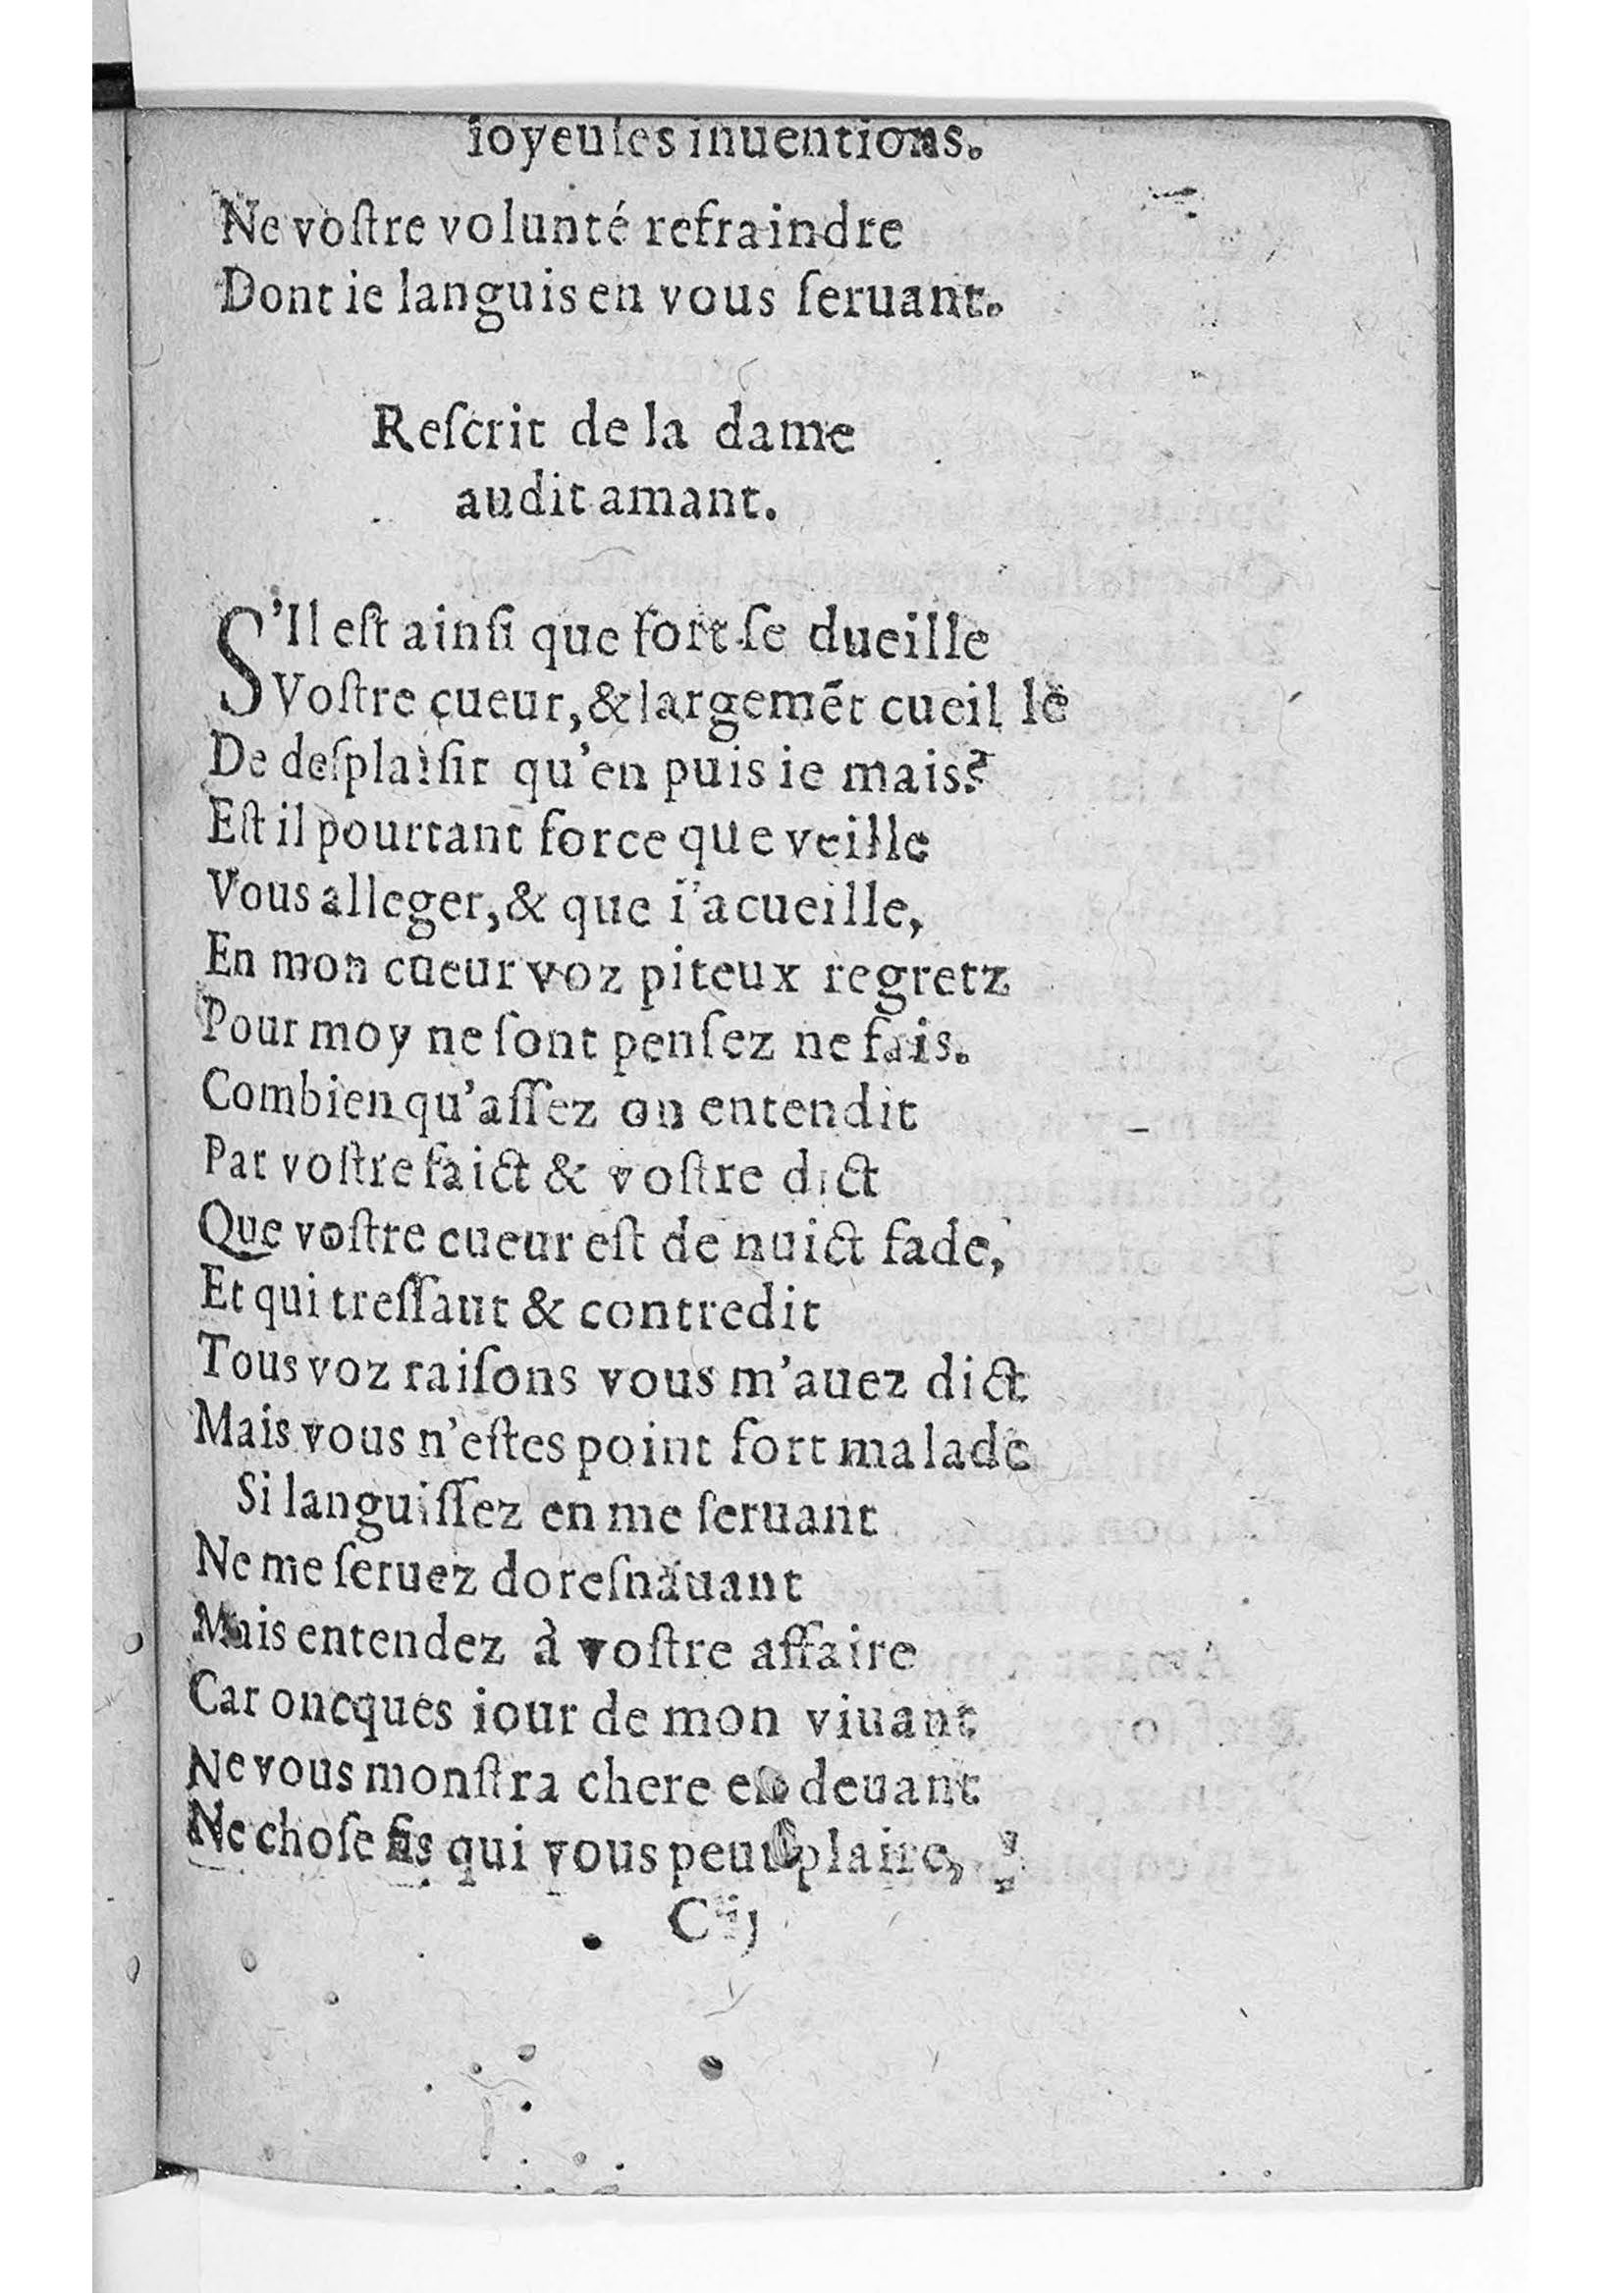 ioyeuſes inuentions.
Ne voſtre volunté refraindre
Dont ie languis en vous ſeruant.
Reſcrit de la dame
audit amant.
S'Il eſt ainſi que fort ſe dueille
Voſtre cueur, & largemẽt cueil le
De deſplaiſir qu'en puis ie mais?
Eſt il pourtant force que veille
Vous alleger, & que i'acueille,
En mon cueur voz piteux regretz
Pour moy ne ſont penſez ne fais.
Combien qu'aſſez on entendit
Par voſtre faict & voſtre dict
Que voſtre cueur eſt de nuict fade,
Et qui treſſaut & contredit
Tous voz raiſons vous m'auez dict
Mais vous n'eſtes point fort malade
Si languiſſez en me ſeruant
Ne me ſeruez doreſnauant
Mais entendez à voſtre affaire
Car oncques iour de mon viuant
Ne vous monſtra chere en deuant
Ne choſe fis qui vous peut plaire,
Ciij